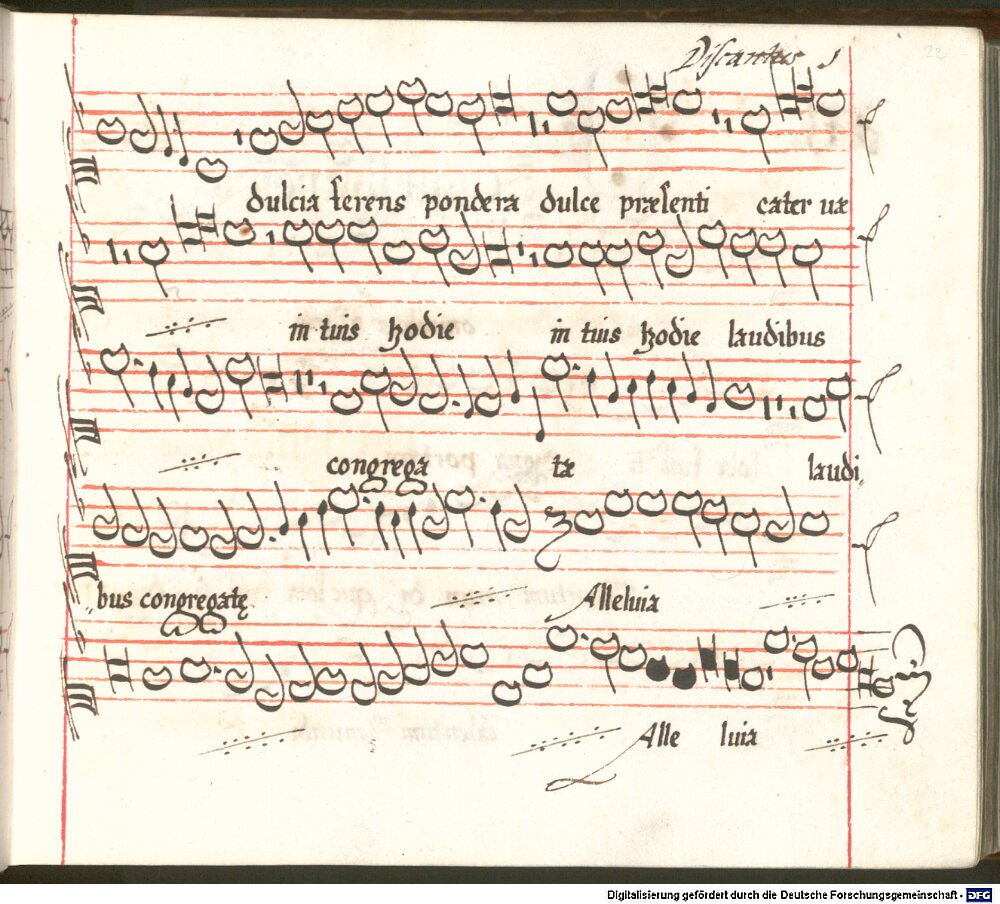 Discantus 1
22
dulcia ferens pondera dulce præsenti cater uæ
in tuis hodie in tuis hodie laudibus
congrega tæ laudi„
„bus congregatę Alleluia
Alle luia
Digitalisierung gefördert durch die Deutsche Forschungsgemeinschaft - DFG